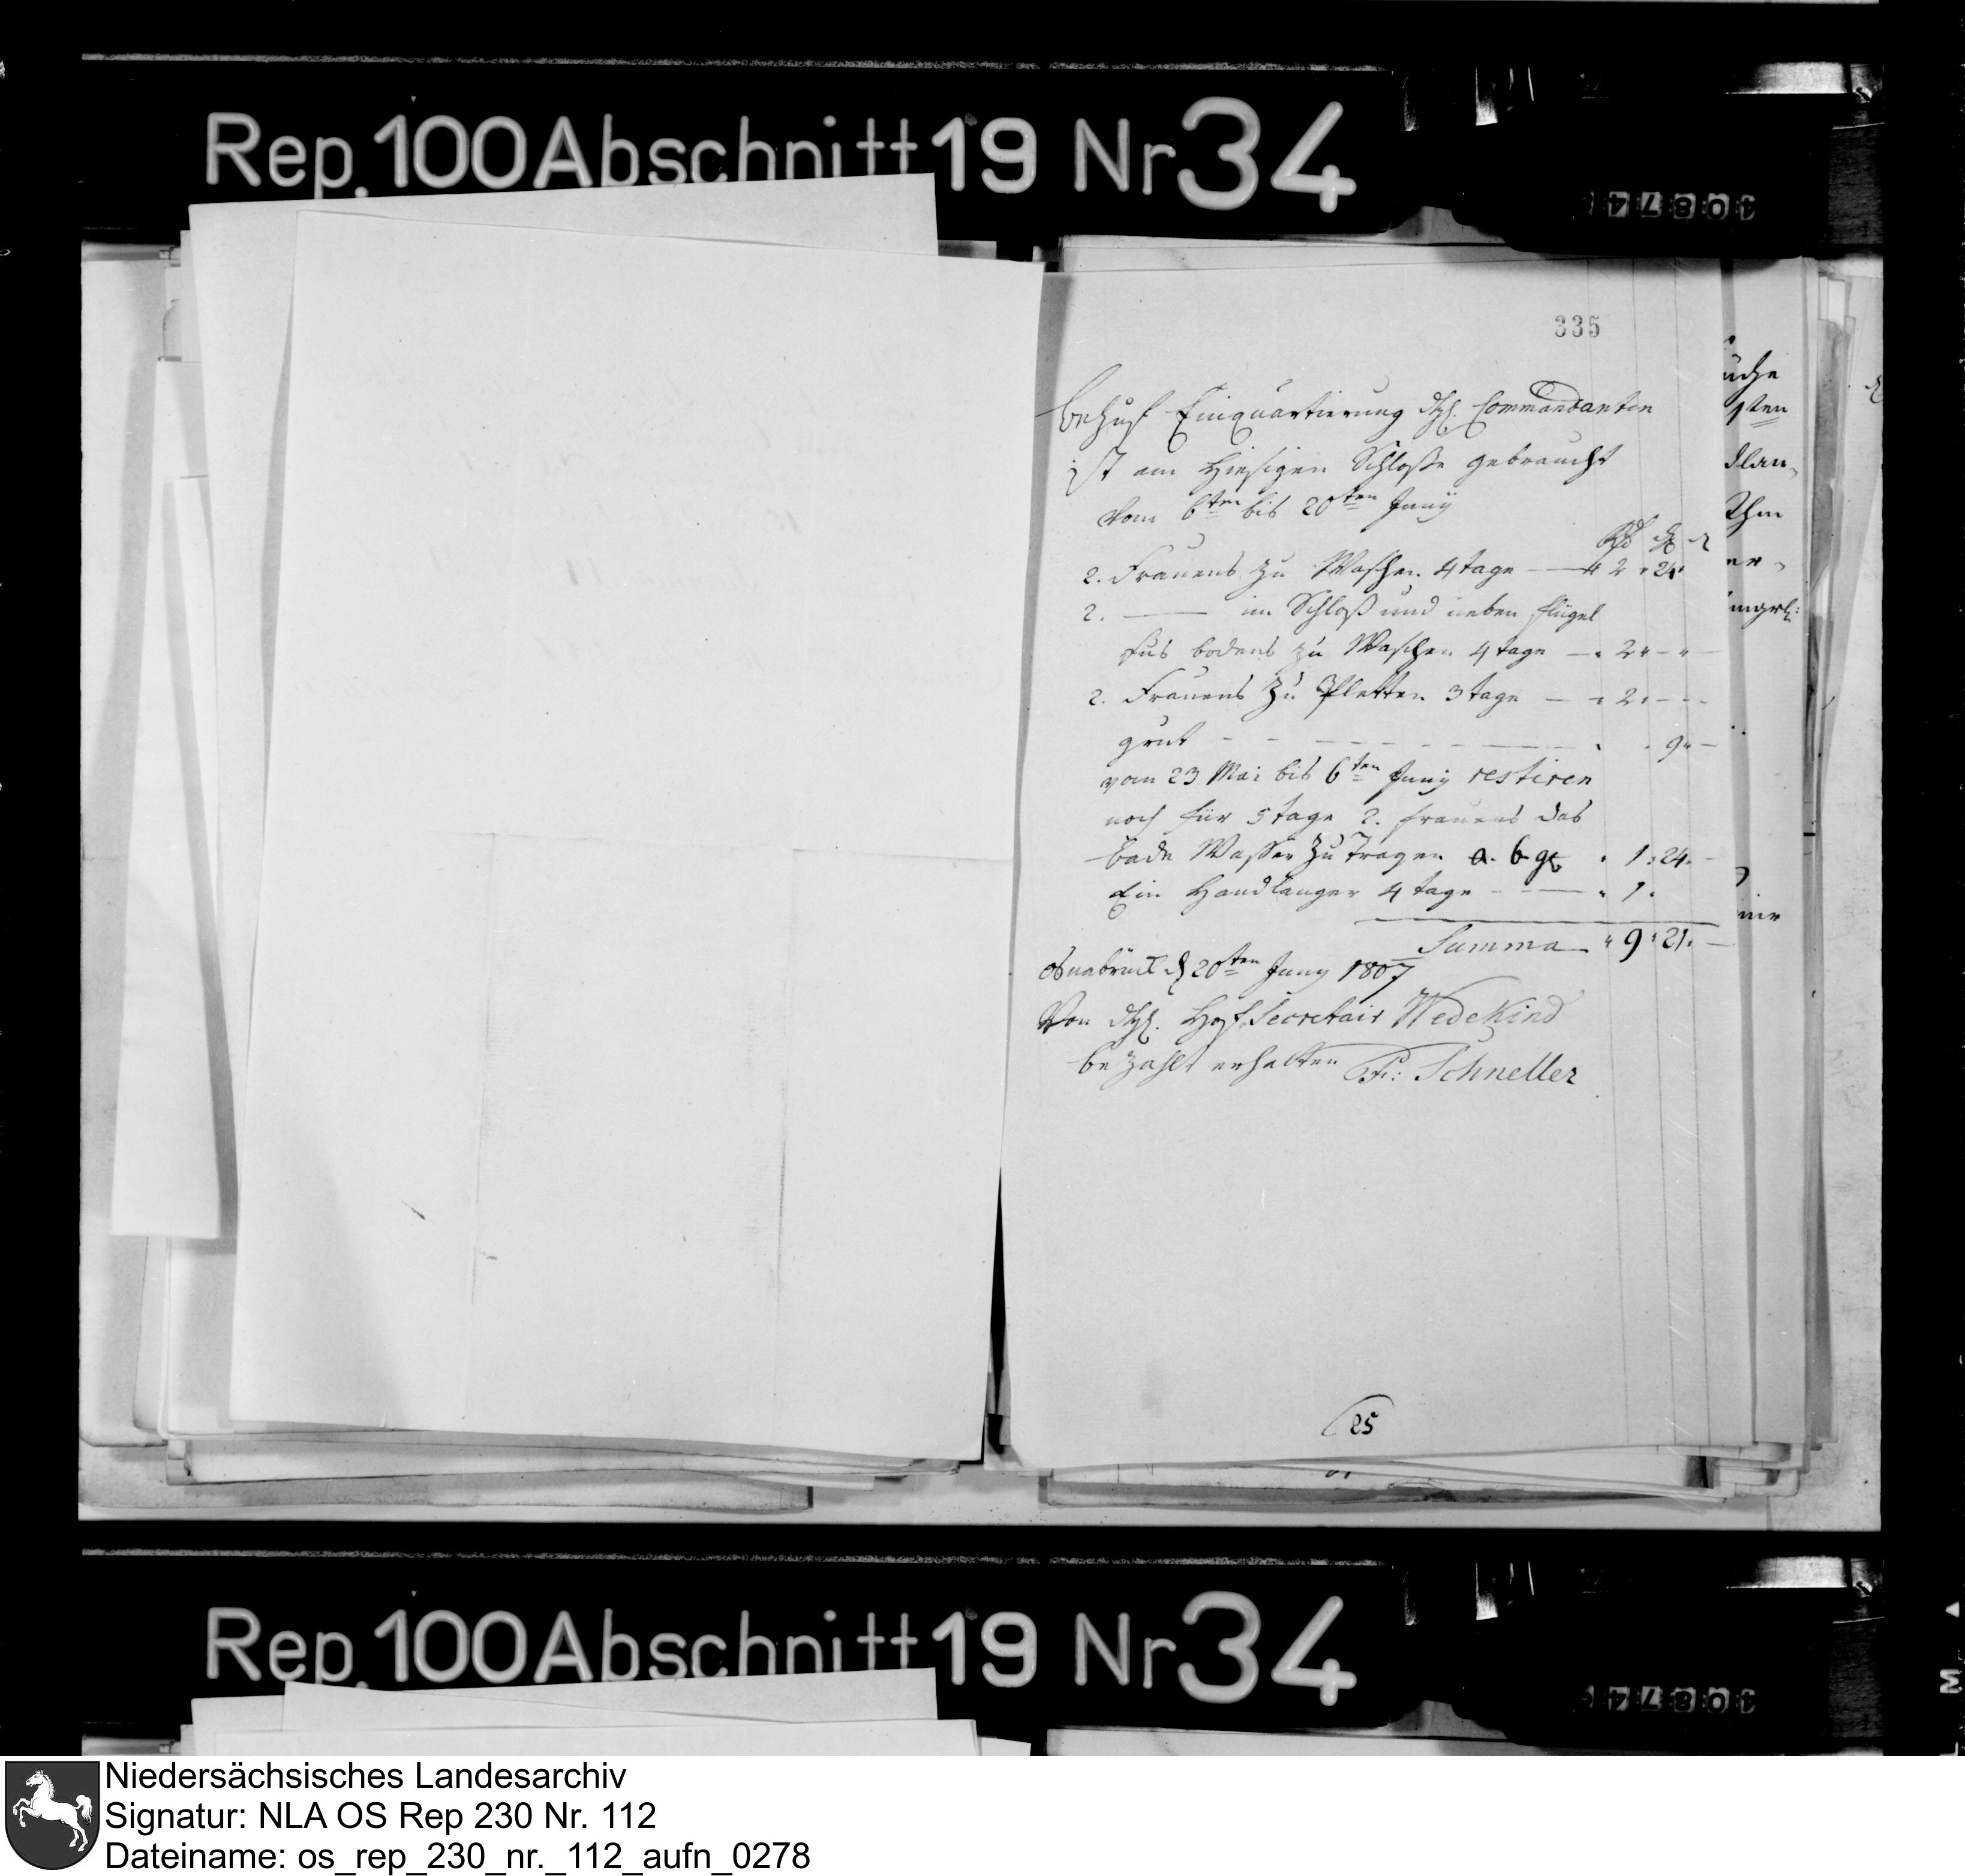 Rep. 100 Abschnitt 19 Nr 34
40874
335
behuf Einquartierung des H. Commandanten
ist am hiesigen Schloße gebraucht
vom 6ten bis 20ten Juny
2. Frauens zu Waschen 4 tage — " 2 " 24 "
2. —— im Schloß und neben flügel
fus bodens zu Waschen 4 tage — " 2 " — " —
2. Frauens zu Pletten 3 tage — " 2 " — —
— — — " " 9 " —
vom 23 Mai bis 6ten Juny restiren
noch für 5 tage 2. frauens das
bade Wasser zu tragen a. 6 gl " 1 " 24 " —
Ein Handlanger 4 tage — — " 1 "
Summa " 9 " 21 " —
Osnabrück d 20ten Juny 1807
Von H. Hof Secretair Wedekind
bezahlt erhalten Fr: Schneller
25
üche
sten
dlan,
Thm
er,
Rep. 100 Abschnitt 19 Nr 34
40874
M
Niedersächsisches Landesarchiv
Signatur: NLA OS Rep 230 Nr. 112
Dateiname: os_rep_230_nr._112_aufn_0278